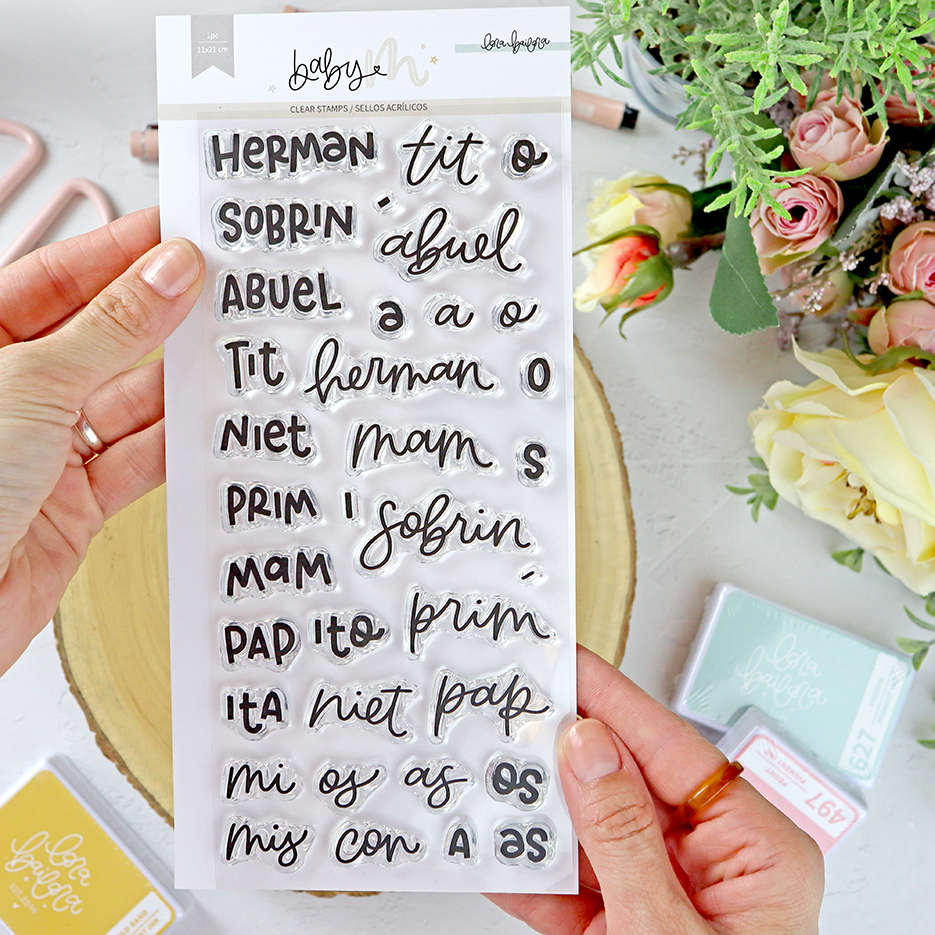 1pc
11x21 cm
baby m
lora bailora
CLEAR STAMPS / SELLOS ACRÍLICOS
HERMAN tit o
SOBRIN abuel
ABUEL a a o
TIT herman o
NIET mam s
PRIM I sobrin
MAM
PAP ITO prim
ITA niet pap
mi os as os
mis con A as
lora bailora
627
497
lora bailora